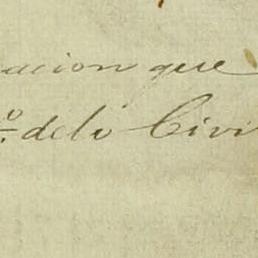 acion que
º. de lo Civi